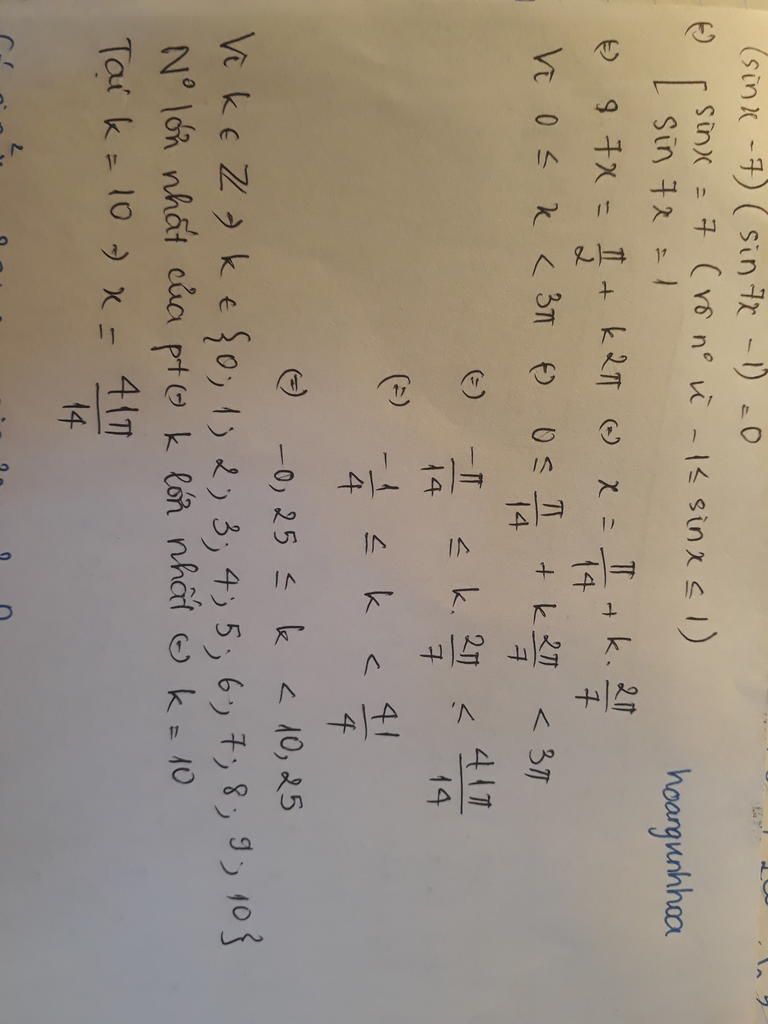 (sinx - 7)(sin7x - 1) = 0
hoangunhhoa
⇔ [ sinx = 7 (vô nº vì -1 ≤ sinx ≤ 1)
sin 7x = 1
⇔ 7x = π/2 + k2π ⇔ x = π/14 + k. 2π/7
Vì 0 ≤ x < 3π ⇔ 0 ≤ π/14 + k 2π/7 < 3π
⇔ -π/14 ≤ k. 2π/7 < 41π/14
⇔ -1/4 ≤ k < 41/4
⇔ -0,25 ≤ k < 10,25
Vì k ∈ ℤ ⇒ k ∈ {0; 1; 2; 3; 4; 5; 6; 7; 8; 9; 10}
Nº lớn nhất của pt ⇔ k lớn nhất ⇔ k = 10
Tại k = 10 ⇒ x = 41π/14